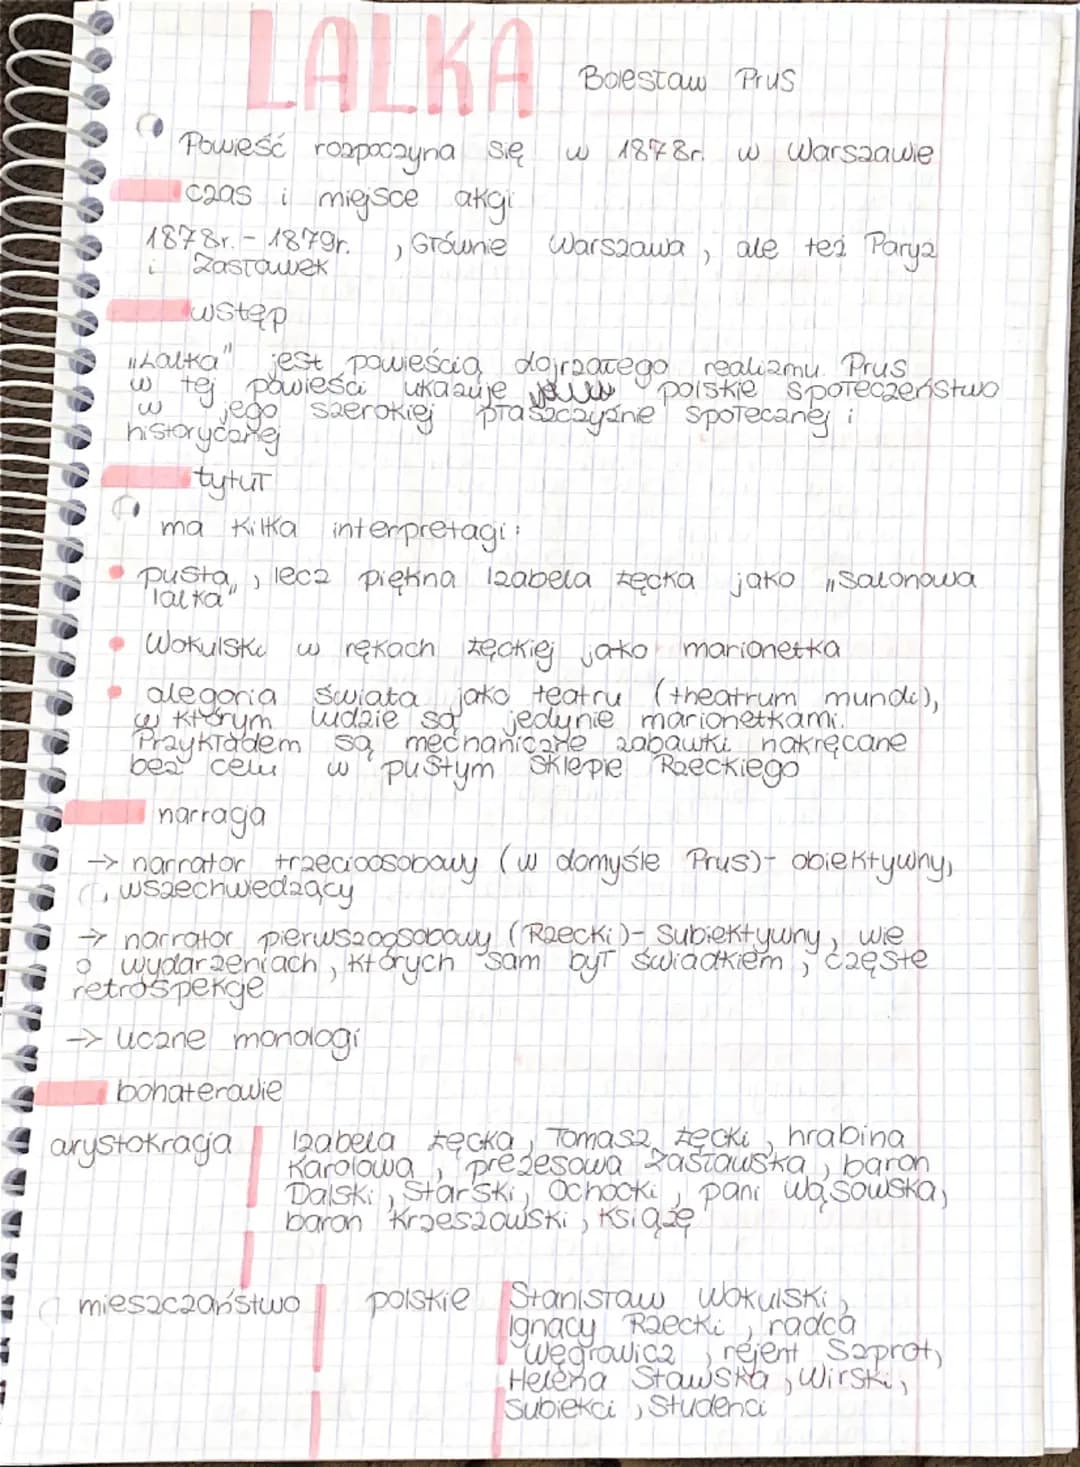 LALKA
Bolesław Prus
Powieść rozpoczyna się w 1878r. w Warszawie
czas i miejsce akcji
1878r. - 1879r. , Głównie Warszawa, ale też Paryż
i Zasławek
wstęp
"Lalka" jest powieścią dojrzałego realizmu. Prus
w tej powieści ukazuje polskie społeczeństwo
w jego szerokiej płaszczyźnie społecznej i
historycznej
tytuł
ma kilka interpretacji:
• pusta, lecz piękna Izabela Łęcka jako "salonowa
lalka"
• Wokulski w rękach Łęckiej jako marionetka
• alegoria świata jako teatru (theatrum mundi),
w którym ludzie są jedynie marionetkami.
Przykładem są mechaniczne zabawki nakręcane
bez celu w pustym sklepie Rzeckiego
narracja
→ narrator trzecioosobowy (w domyśle Prus) - obiektywny,
, wszechwiedzący
→ narrator pierwszoosobowy (Rzecki) - subiektywny, wie
o wydarzeniach, których sam był świadkiem, częste
retrospekcje
→ liczne monologi
bohaterowie
arystokracja
Izabela Łęcka, Tomasz Łęcki, hrabina
Karolowa, prezesowa Zasławska, baron
Dalski, Starski, Ochocki, pani Wąsowska,
baron Krzeszowski, Książę
mieszczaństwo
polskie
Stanisław Wokulski,
Ignacy Rzecki, radca
Węgrowicz, rejent Szprot,
Helena Stawska, Wirski,
subiekci, studenci